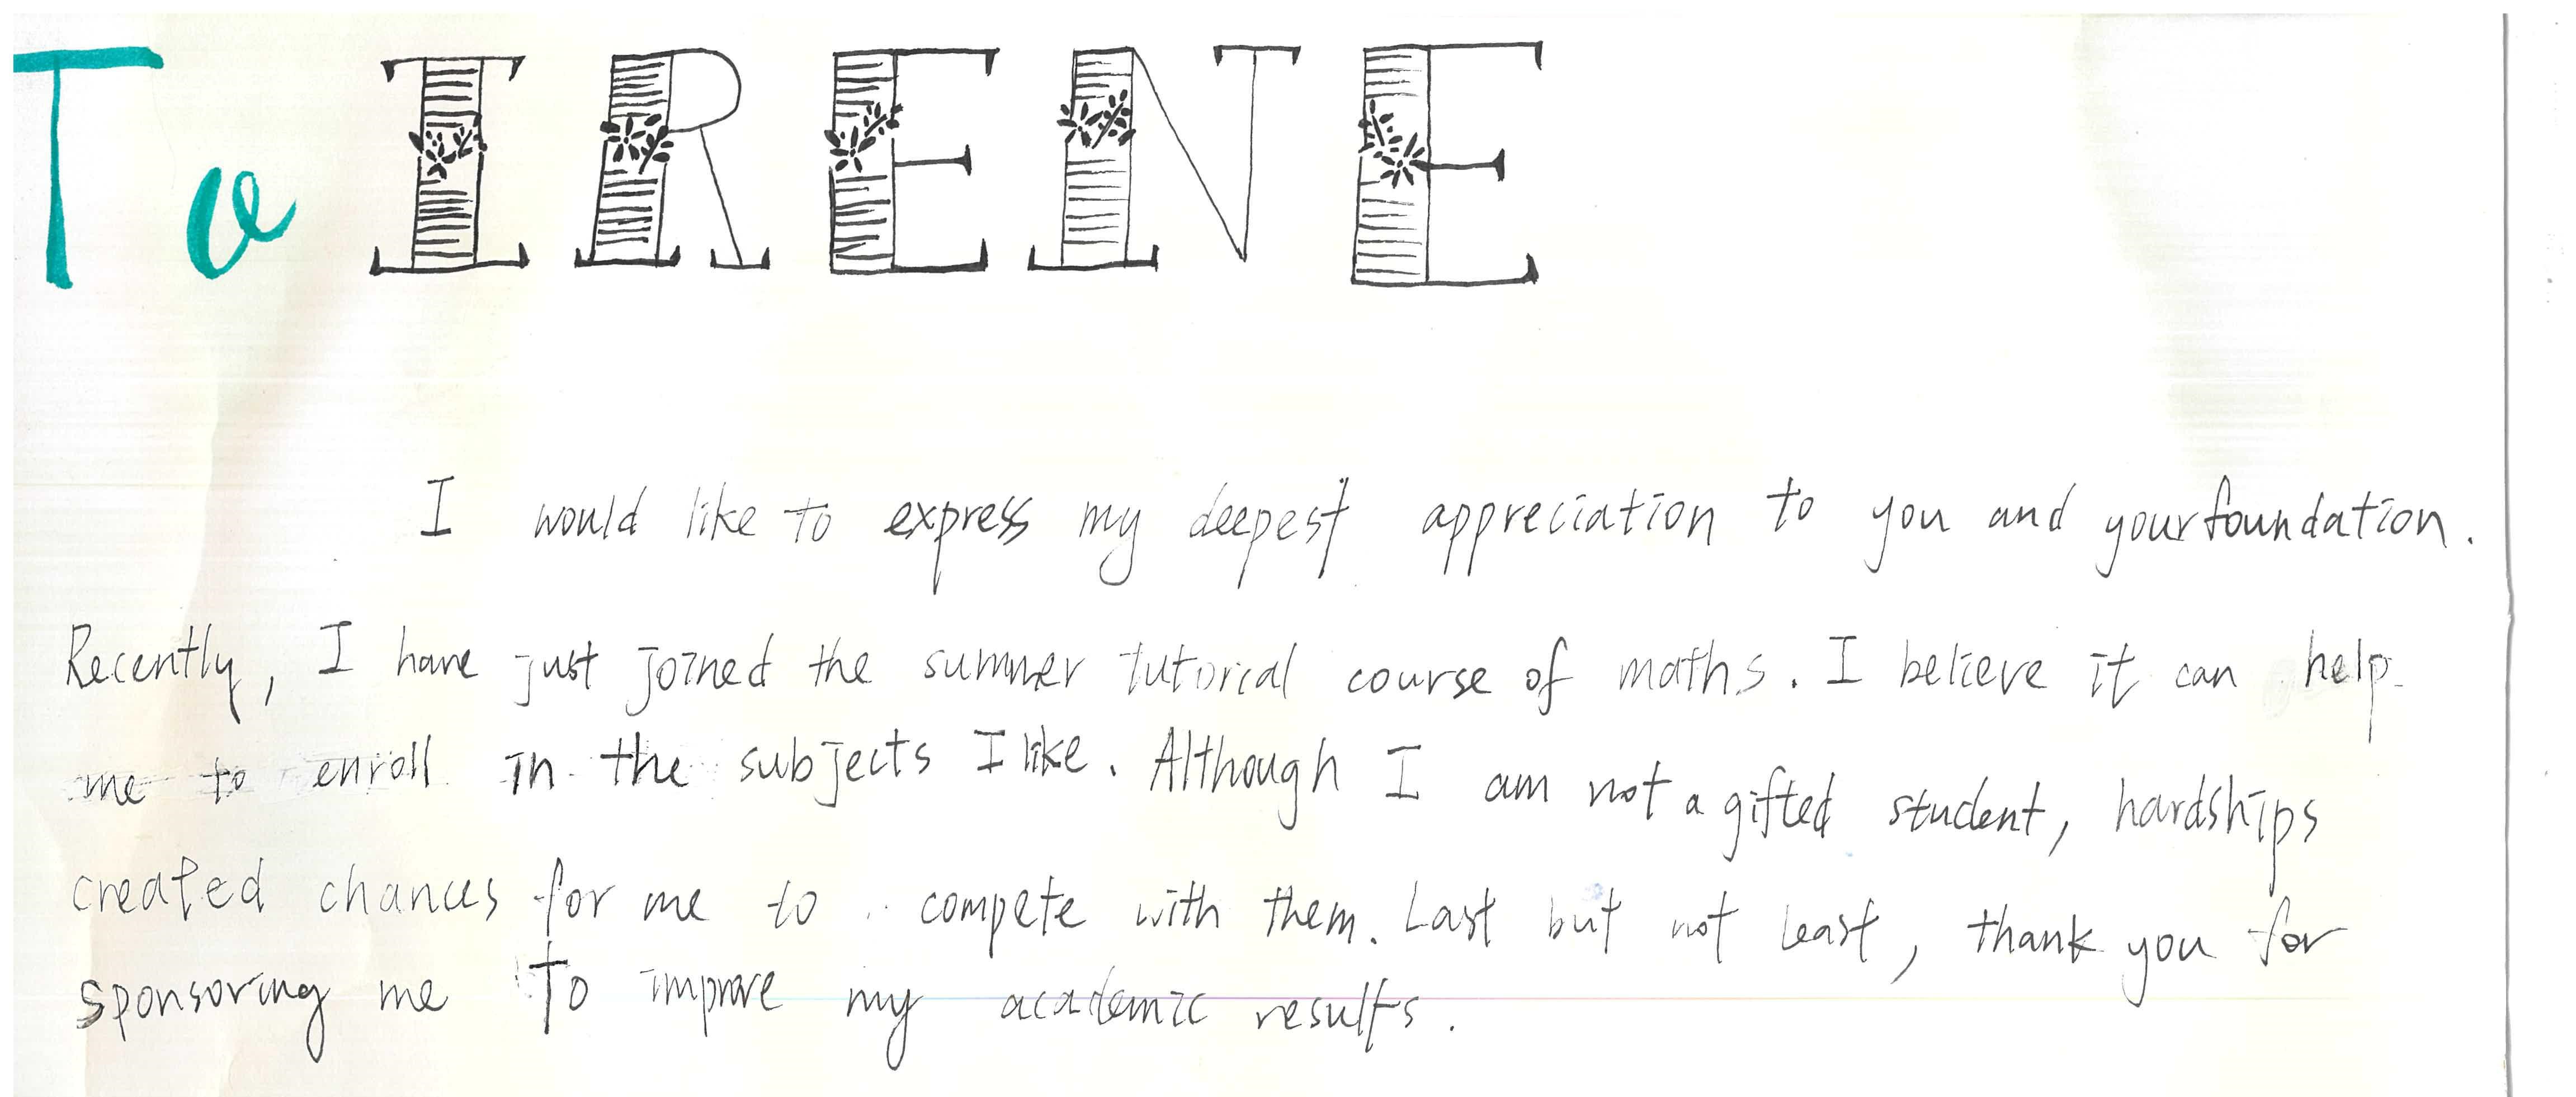 To IRENE
I would like to express my deepest appreciation to you and your foundation.
Recently, I have just joined the summer tutorial course of maths. I believe it can help
me to enroll in the subjects I like. Although I am not a gifted student, hardships
created chances for me to compete with them. Last but not least, thank you for
sponsoring me to improve my academic results.